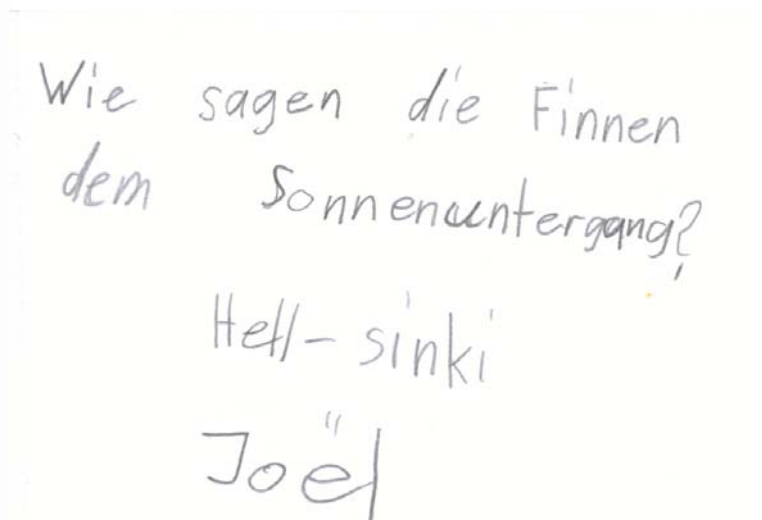 Wie sagen die Finnen
dem Sonnenuntergang?
Hell-sinki
Joël